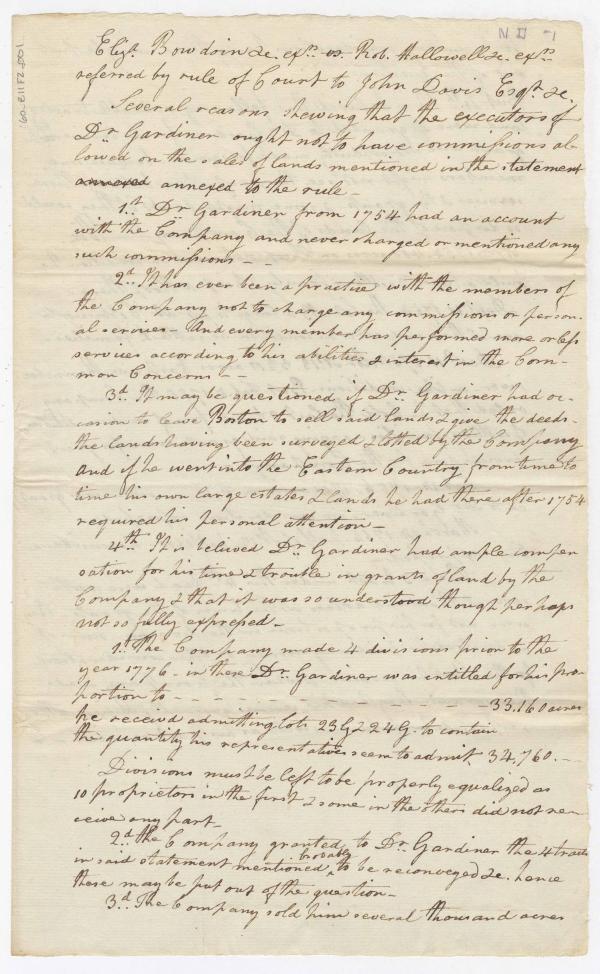 Eliz. Bowdoin &c. exrs vs. Rob. Hallowell &c. exrs
referred by rule of Court to John Davis Esqr. &c.
Several reasons shewing that the executors of
Dr. Gardiner ought not to have commissions al-
lowed on the sales of lands mentioned in the statement
annexed annexed to the rule –
1.st Dr. Gardiner from 1754 had an account
with the Company and never charged or mentioned any
such commissions – –
2.d It has ever been a practice with the members of
the Company not to charge any commissions or person-
al services – And every member has performed more or less
services according to his abilities & interest in the Com-
mon Concerns – –
3.d It may be questioned if Dr. Gardiner had oc-
casion to leave Boston to sell said lands & give the deeds –
the lands having been surveyed & lotted by the Company
and if he went into the Eastern Country from time to
time his own large estates & lands he had there after 1754
required his personal attention –
4.th It is believed Dr. Gardiner had ample compen
sation for his time & trouble in grants of land by the
Company & that it was so understood though perhaps
not so fully expressed –
1.st The Company made 4 divisions prior to the
year 1776 – in these Dr. Gardiner was entitled for his pro-
portion to – – – – – – – – – – – – 33.160 acres
he received admitting lots 23G & 24G. to contain
the quantity his representatives seem to admit 34,760. –
Divisions must be left to be properly equalized as
10 proprietors in the first & some in the others did not re-
ceive any part –
2.d the Company granted to Dr. Gardiner the 4 tracts
in said statement mentioned probably to be reconveyed &c. hence
these may be put out of the question –
3.d The Company sold him several thousand acres